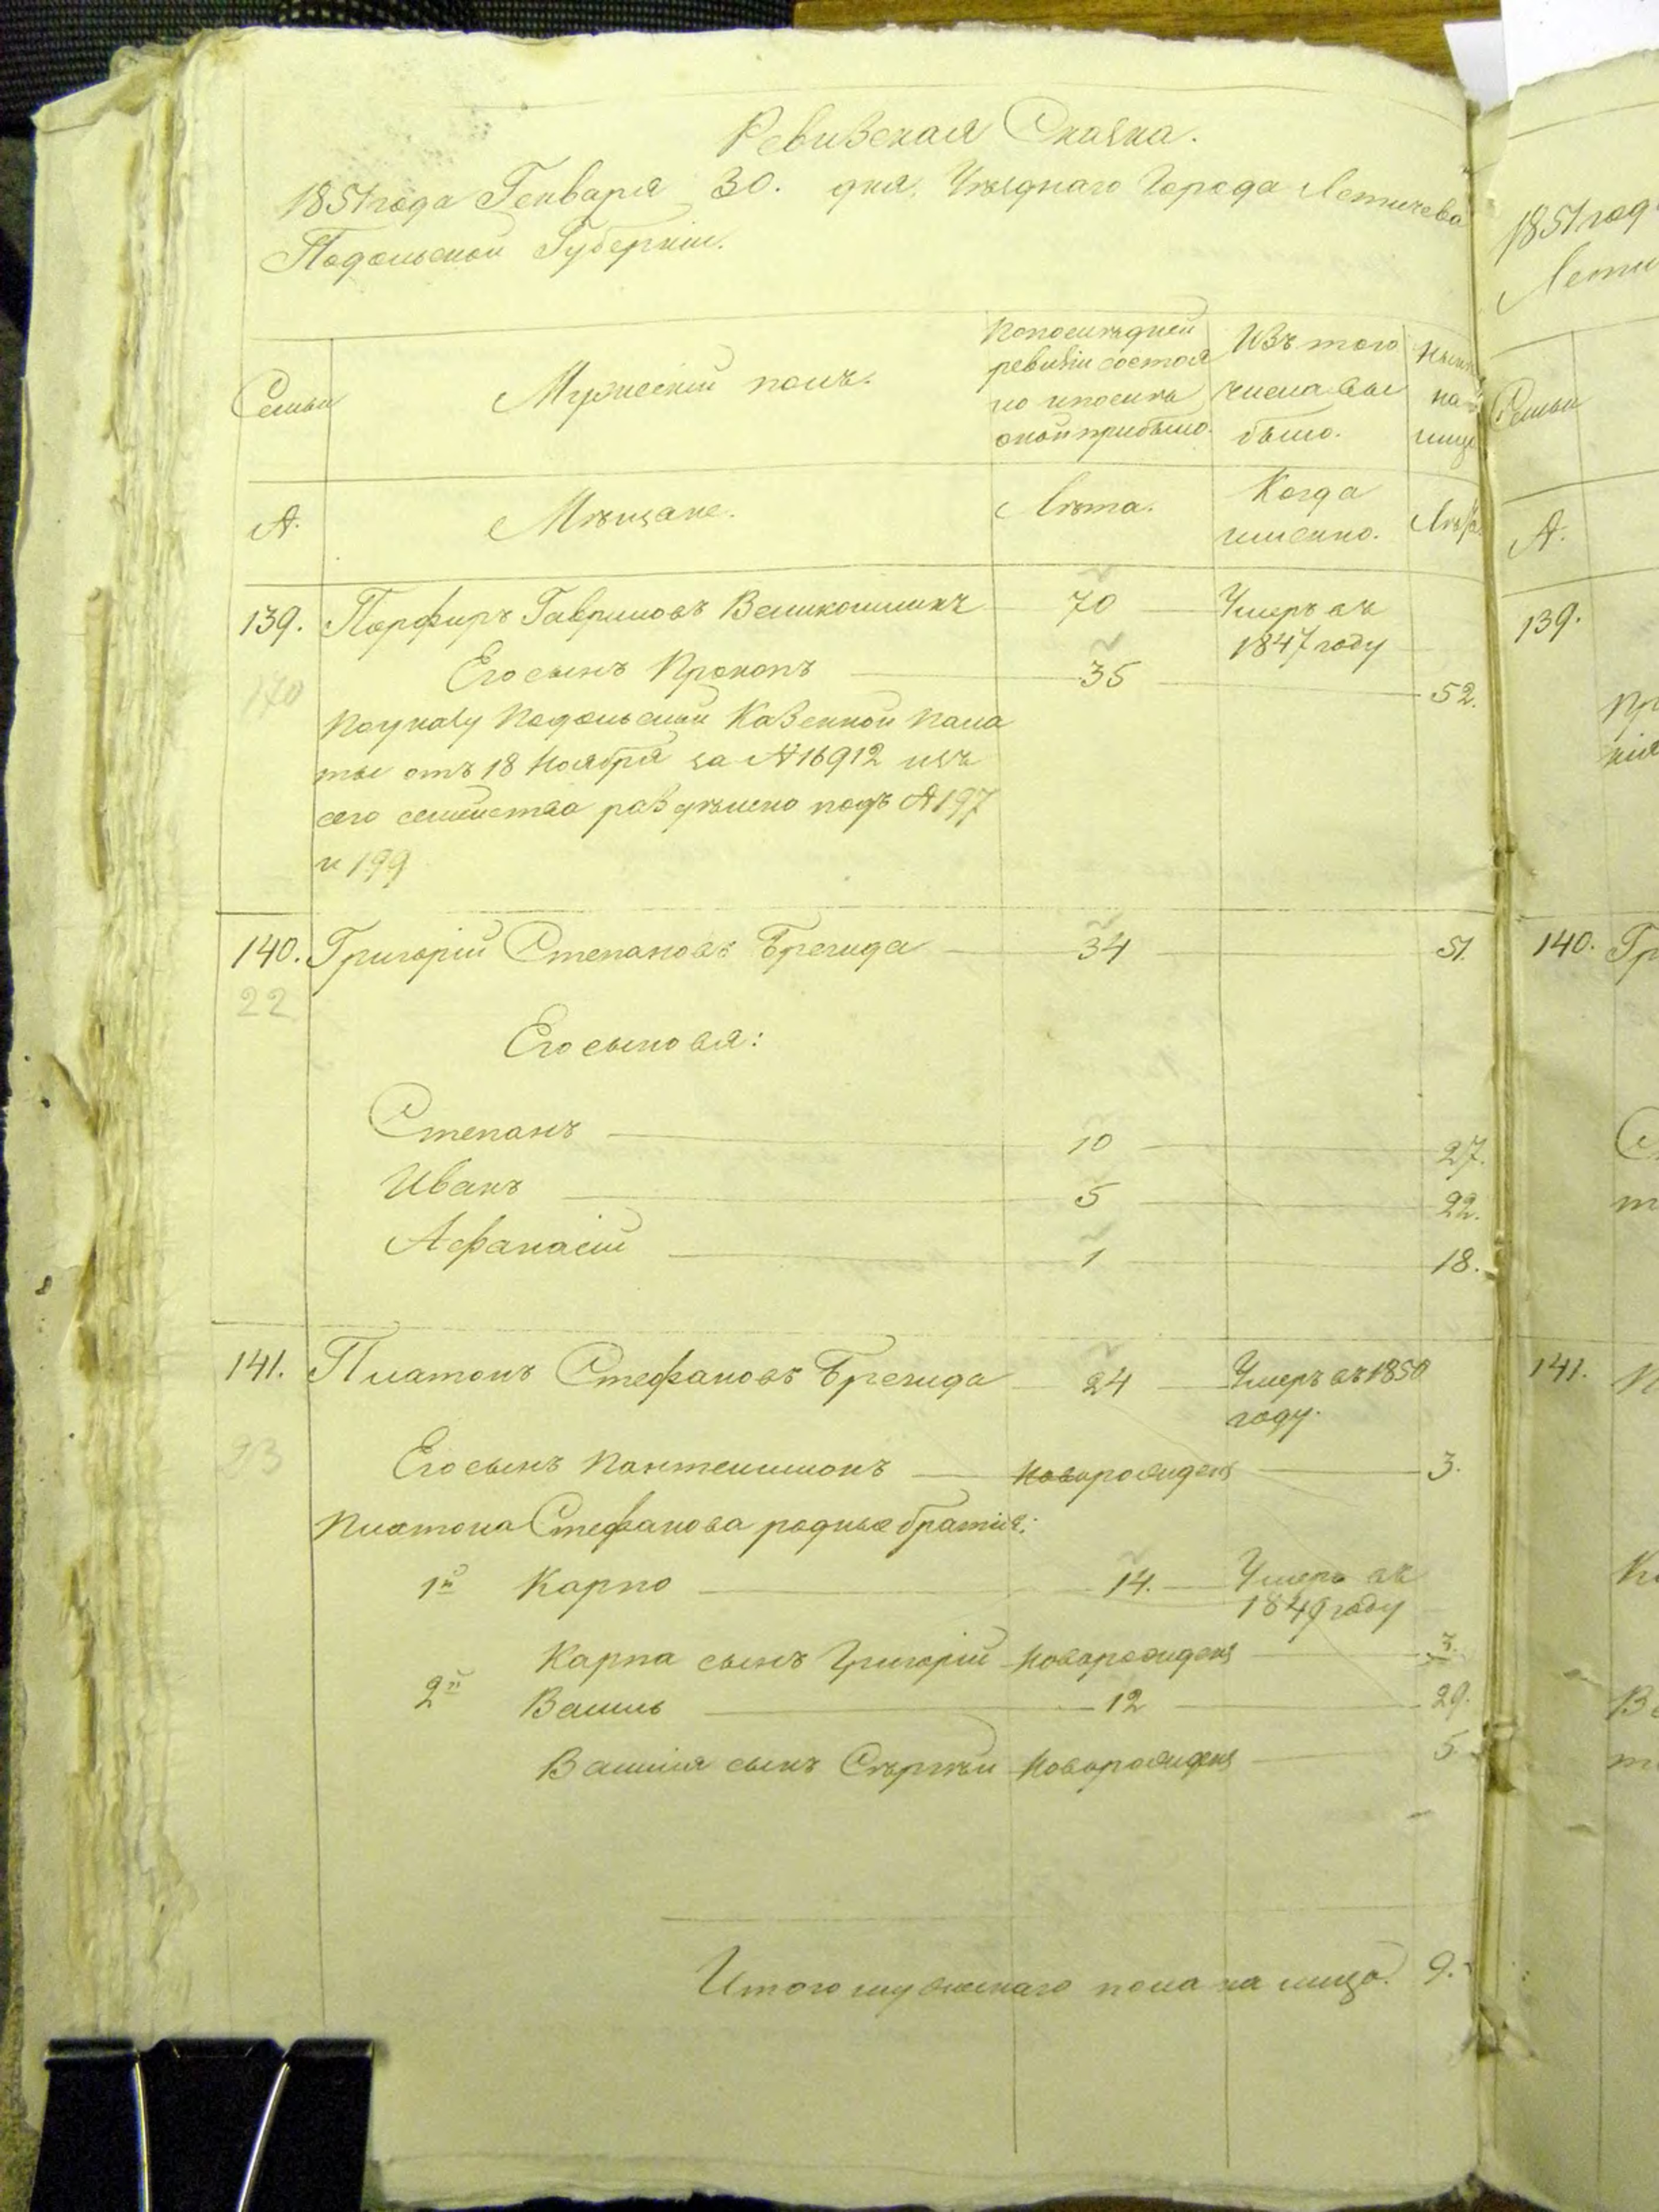 Ревизская Сказка.
1851 года Генваря 30. дня, Уѣзднаго Города Летичева
Подольской Губерніи.
Семьи
Мужескій полъ.
По послѣдней
ревизіи состоя
ло и послѣ
оной прибыло.
Изъ того
числа вы
было.
Нынѣ
на
лице
№.
Мѣщане.
Лѣта.
Когда
именно.
Лѣта
139. Порфиръ Гавриловъ 70 Умеръ въ
1847 году
Его сынъ Прокопъ 35 52.
170
По указу Подольской Казенной Пала
ты отъ 18 Ноября за № 16912 изъ
сего семейства раздѣлено подъ № 197
и 199
140. Григорій Степановъ Брегида 34 51.
22
Его сыновья:
Степанъ 10 27.
Иванъ 5 22.
Афанасій 1 18.
141. Платонъ Стефановъ Брегида 24 Умеръ въ 1850
году.
23
Его сынъ Пантелимонъ новорожденъ 3.
Платона Стефанова родные братія:
1й Карпо 14. Умеръ въ
1849 году
Карпа сынъ Григорій новорожденъ 3.
2й Василь 12 29.
Василя сынъ Сѣргѣй новорожденъ 5.
Итого мужескаго пола на лицо. 9.
1851 год
Лети
Семьи
№.
139.
140. Гр
141.